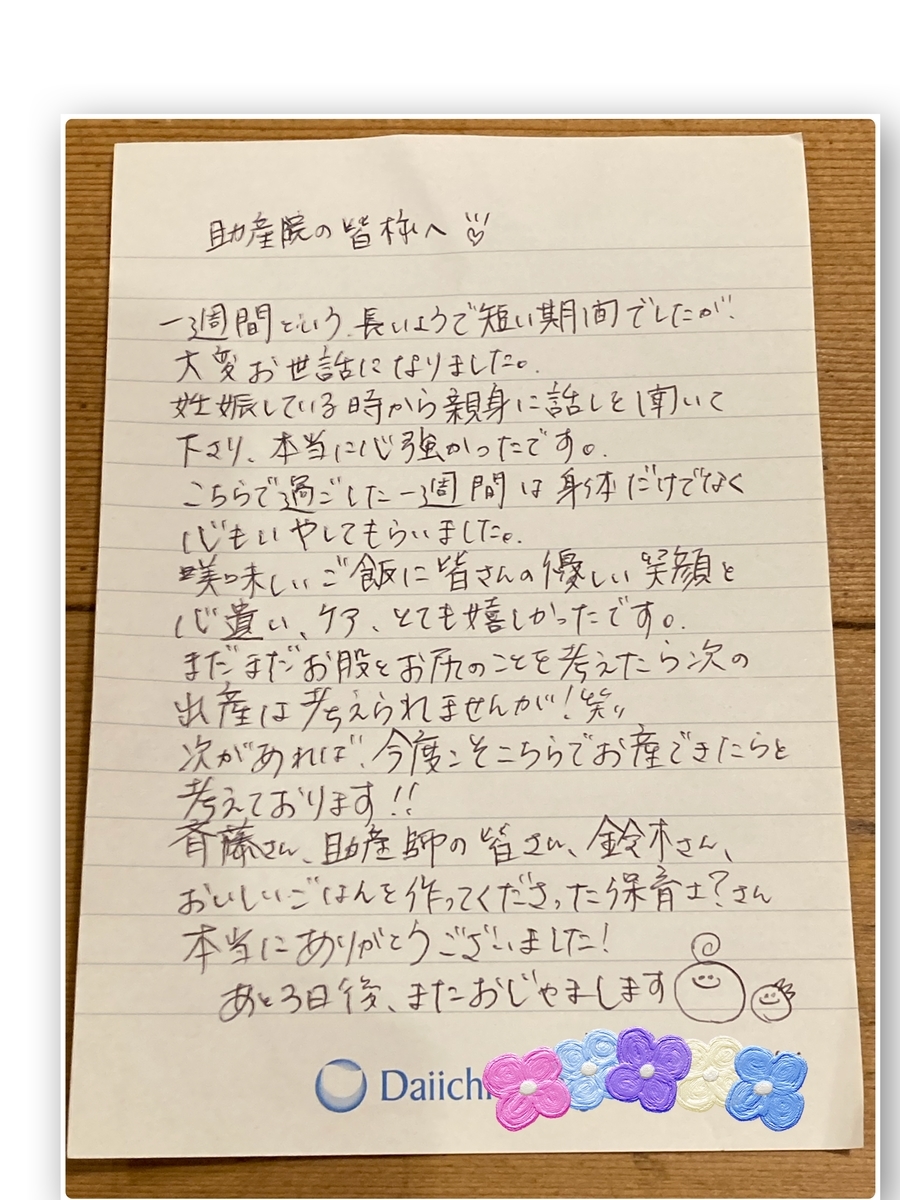 助産院の皆様へ♡
一週間という、長いようで短い期間でしたが、
大変お世話になりました。
妊娠している時から親身に話しを聞いて
下さり、本当に心強かったです。
こちらで過ごした一週間は身体だけでなく
心もいやしてもらいました。
美味しいご飯に皆さんの優しい笑顔と
心遣い、ケア、とても嬉しかったです。
まだまだお股とお尻のことを考えたら次の
出産は考えられませんが!笑"
次があれば、今度こそこちらでお産できたらと
考えております!!
斉藤さん、助産師の皆さん、鈴木さん、
おいしいごはんを作ってくださった保育士?さん
本当にありがとうございました!
あと3日後、またおじゃまします
Daiichi